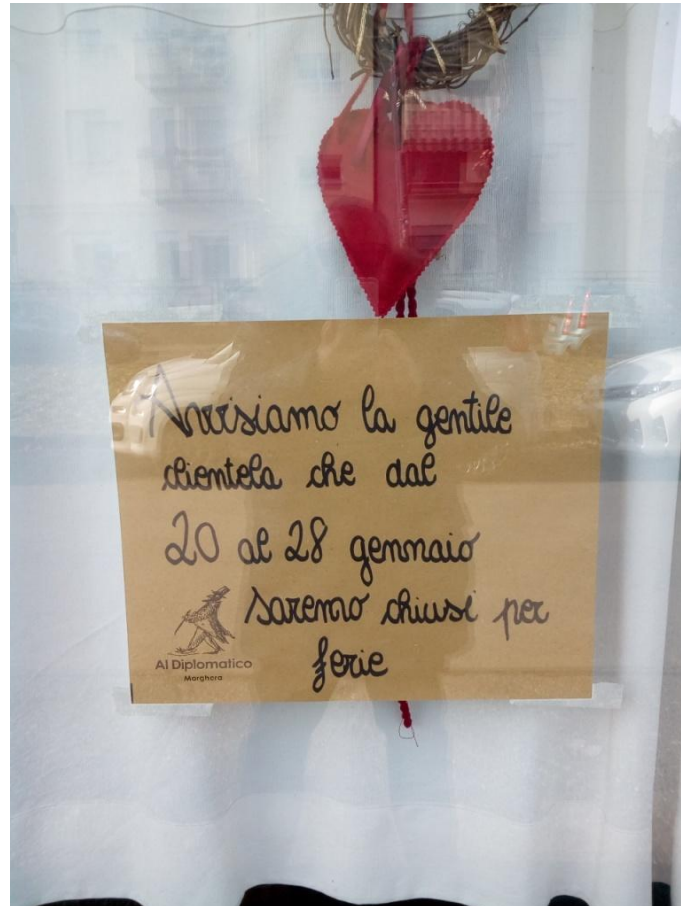 Avvisiamo la gentile
clientela che dal
20 al 28 gennaio
saremo chiusi per
ferie
Al Diplomatico
Marghera